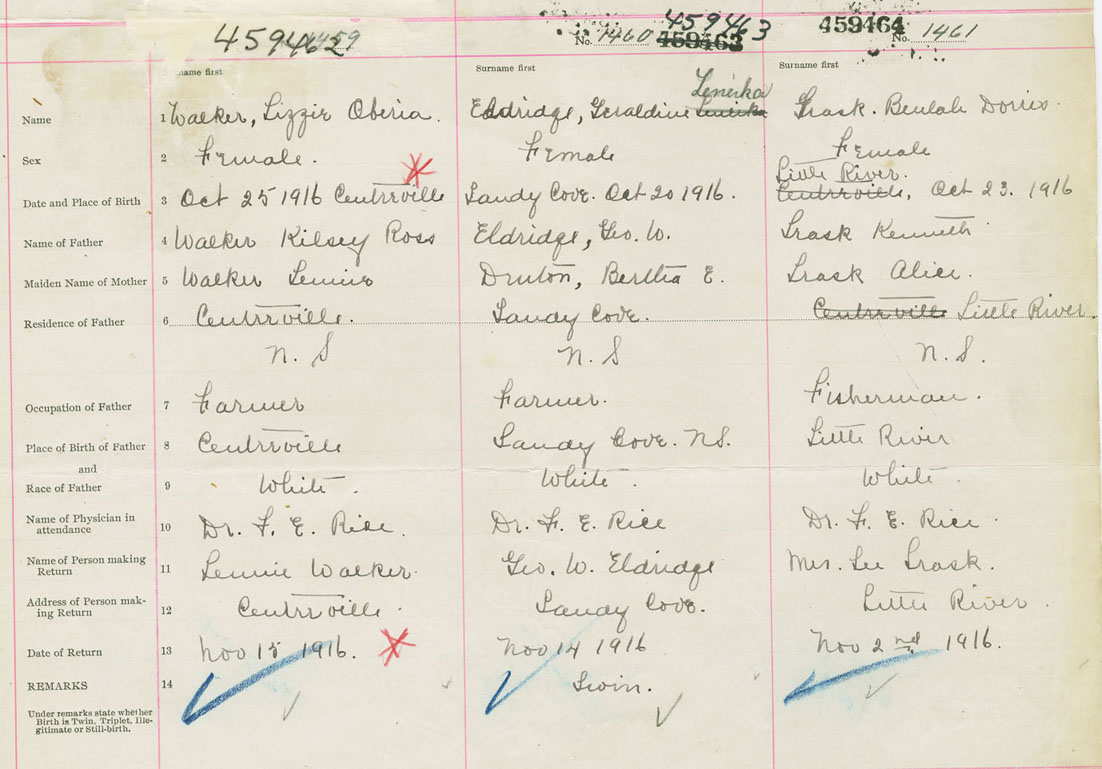 459462 1459
No. 1460 459463 459463
459464 No. 1461
name first
Surname first
Surname first
Name 1 Walker, Lizzie Oberia. Eldridge, Geraldine Leneika Trask. Beulah Dorris
Sex 2 Female. Female Female
Little River.
Date and Place of Birth 3 Oct 25 1916 Centreville Sandy Cove. Oct 20 1916. Centreville, Oct 23. 1916
Name of Father 4 Walker Kilsey Ross Eldridge, Geo. W. Trask Kenneth
Maiden Name of Mother 5 Walker Lennie Denton, Bertha E. Trask Alice.
Residence of Father 6 Centreville. Sandy Cove. Centreville Little River.
N. S N. S N. S.
Occupation of Father 7 Farmer Farmer. Fisherman.
Place of Birth of Father 8 Centreville Sandy Cove. N.S. Little River
and
Race of Father 9 White. White. White.
Name of Physician in attendance 10 Dr. F. E. Rice. Dr. F. E. Rice Dr. F. E. Rice.
Name of Person making Return 11 Lennie Walker. Geo. W. Eldridge Mrs. Lee Trask.
Address of Person making Return 12 Centreville. Sandy Cove. Little River.
Date of Return 13 Nov 15 1916. Nov 14 1916 Nov 2nd 1916.
REMARKS 14 Twin.
Under remarks state whether
Birth is Twin, Triplet, Ille-
gitimate or Still-birth.